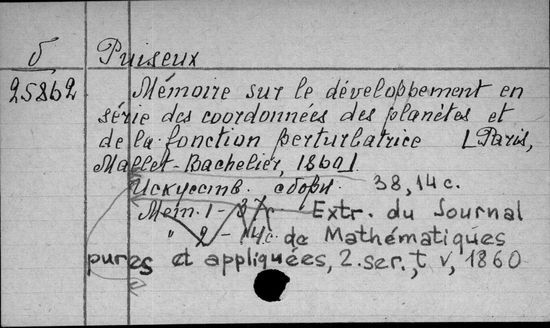 б Puiseux
25862 Mémoire sur le développement en
série des coordonnées des planètes et
de la fonction perturbatrice [Paris,
Mallet-Bachelier, 1860]
Искусств. сборн. 38, 14 с.
Mém. 1 - 37 Extr. du Journal
" 2 - 14 с. de Mathématiques
pures et appliquées, 2. ser., t V, 1860